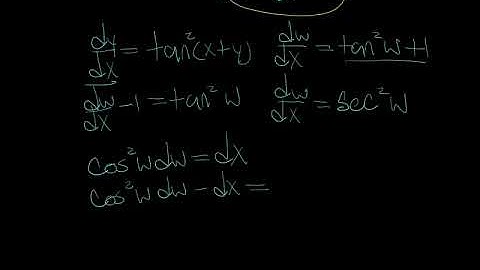 dy/dx = tan²(x+y)
dw/dx = tan²w + 1
dw/dx - 1 = tan²w
dw/dx = sec²w
cos²w dw = dx
cos²w dw - dx =